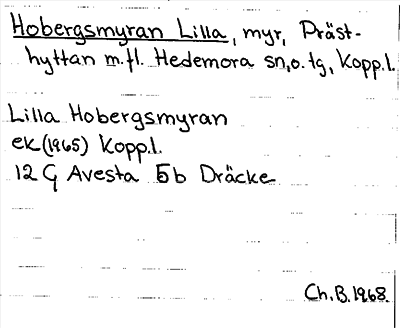 Hobergsmyran Lilla, myr, Präst-
hyttan m.fl. Hedemora sn, o. tg, Kopp.l.
Lilla Hobergsmyran
ek (1965) Kopp.l.
12 G Avesta 5b Dräcke
Ch.B.1968.